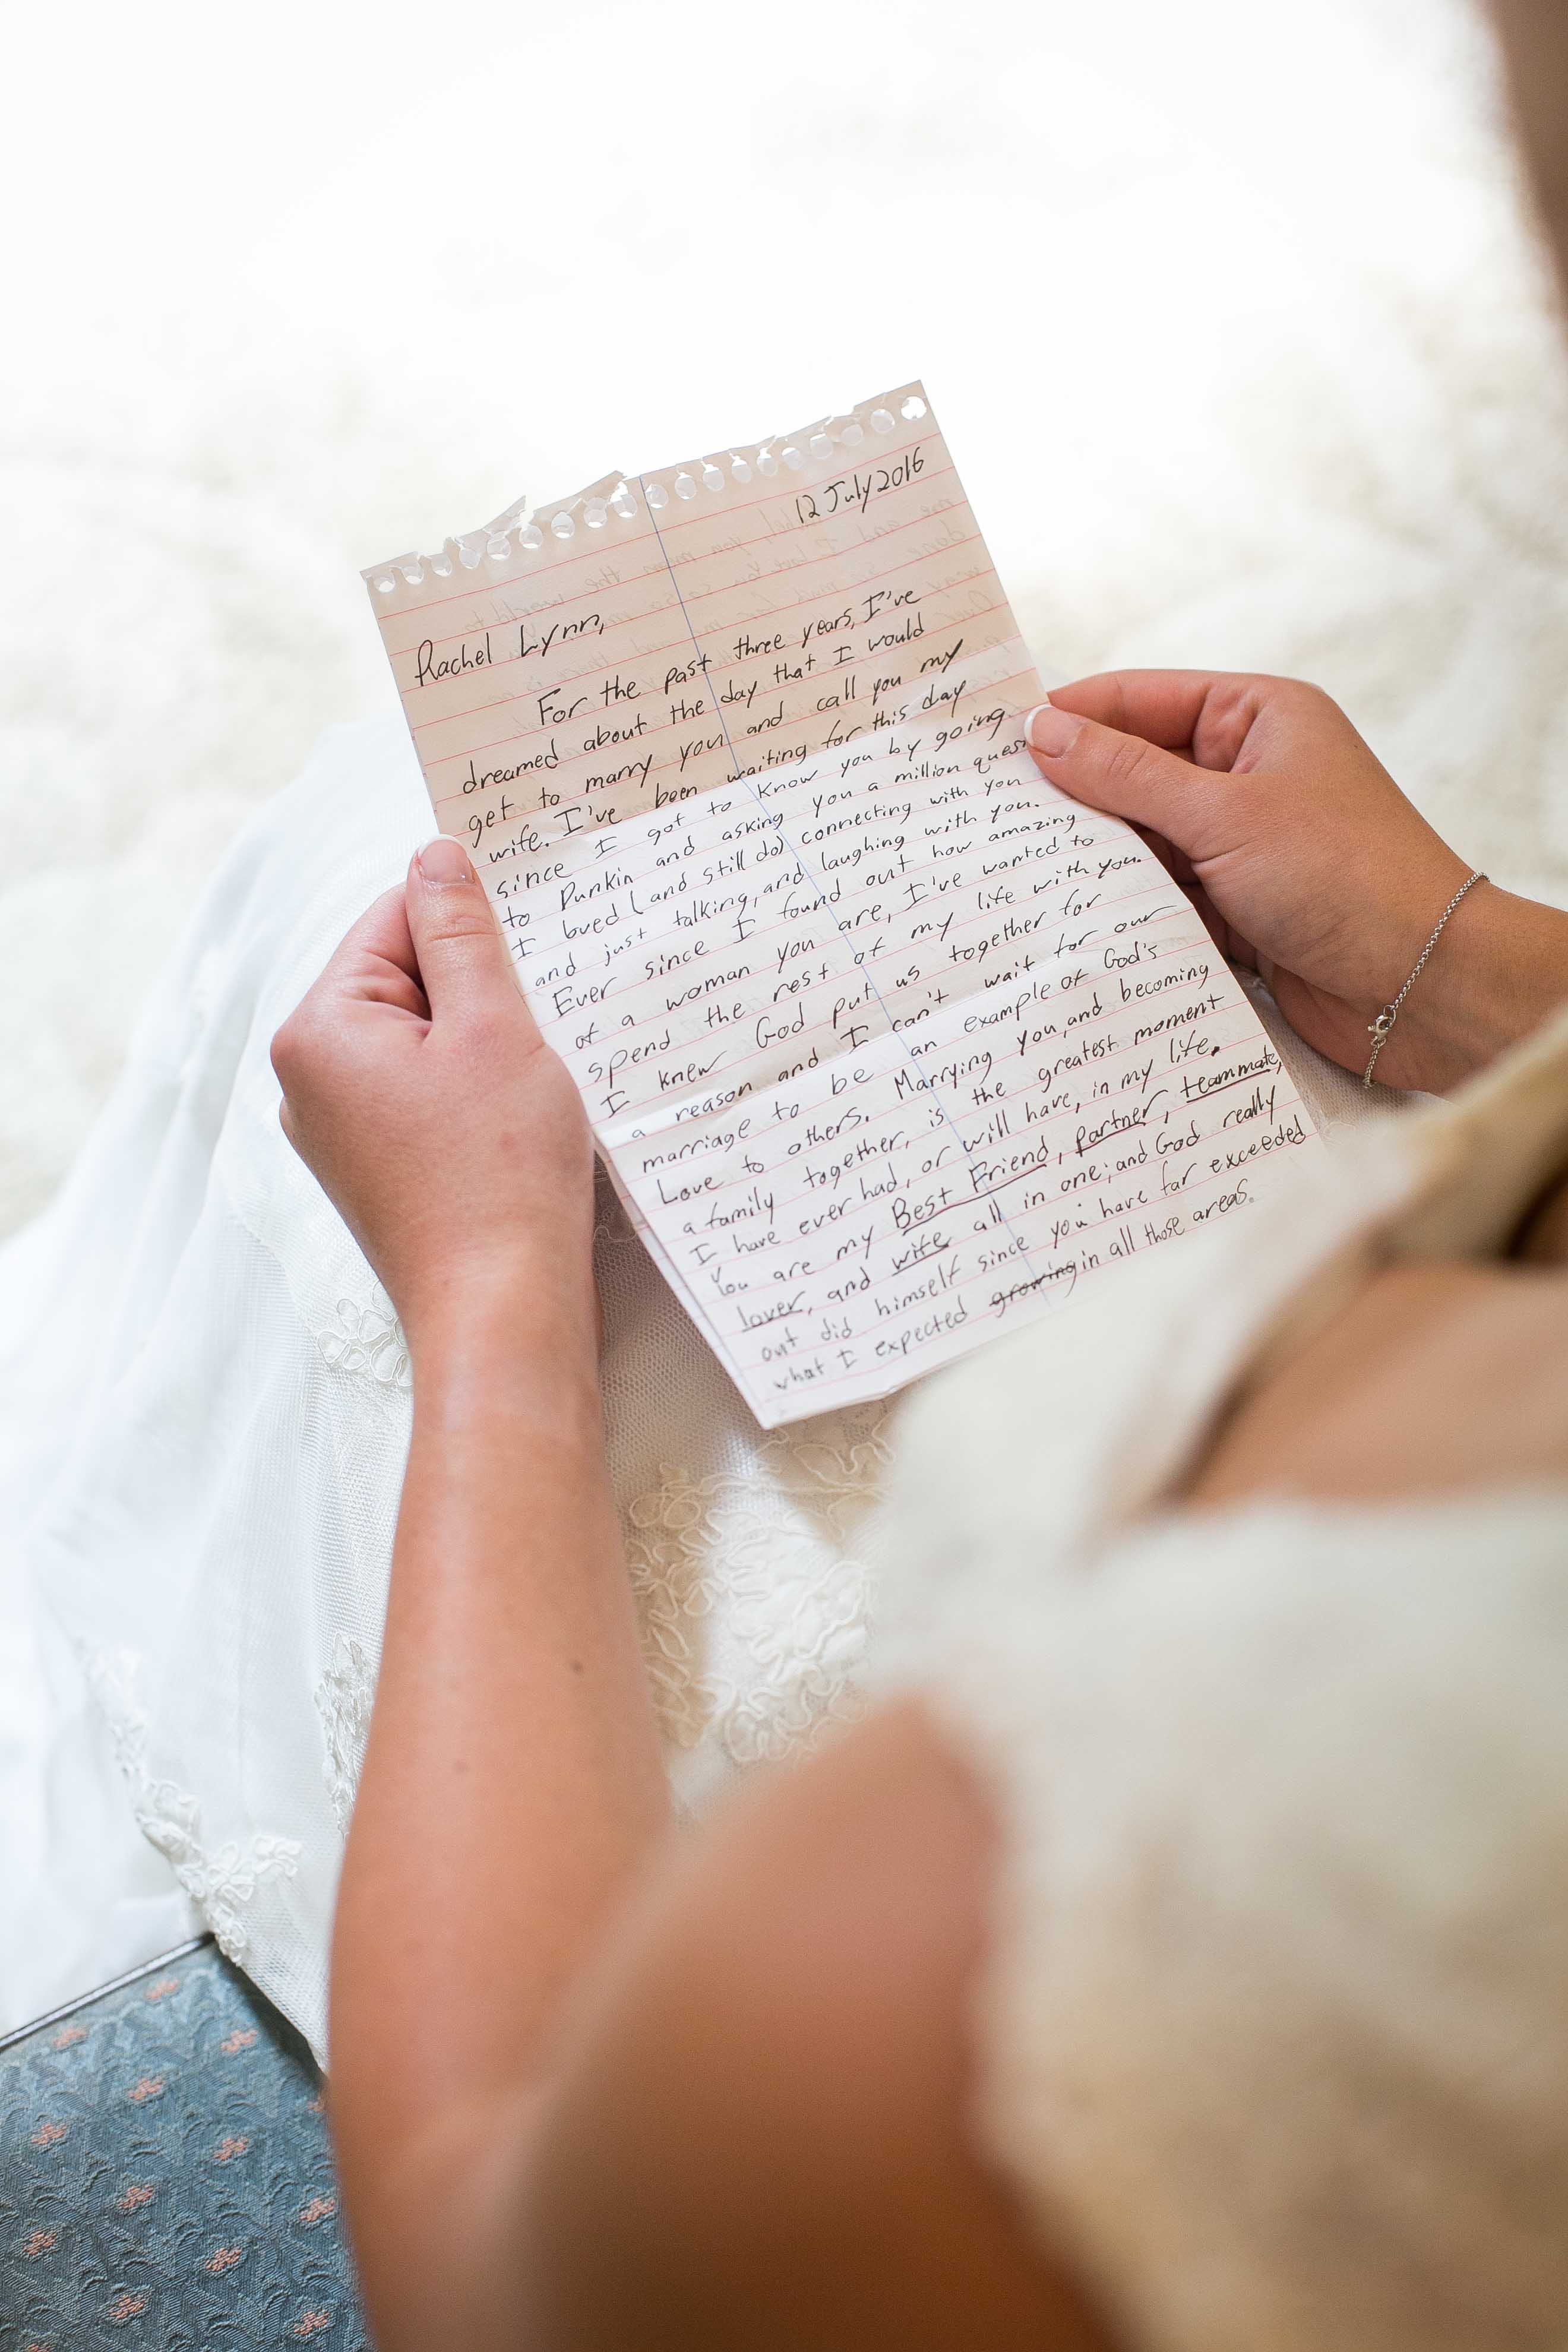 12 July 2016
Rachel Lynn,
For the past three years, I've
dreamed about the day that I would
get to marry you and call you my
wife. I've been waiting for this day
since I got to know you by going
to Dunkin and asking you a million ques
I loved (and still do) connecting with you
and just talking, and laughing with you.
Ever since I found out how amazing
of a woman you are, I've wanted to
spend the rest of my life with you.
I knew God put us together for
a reason and I can't wait for our
marriage to be an example of God's
Love to others. Marrying you, and becoming
a family together, is the greatest moment
I have ever had, or will have, in my life.
You are my Best Friend, partner, teammate,
lover, and wife all in one; and God really
out did himself since you have far exceeded
what I expected growing in all those areas.